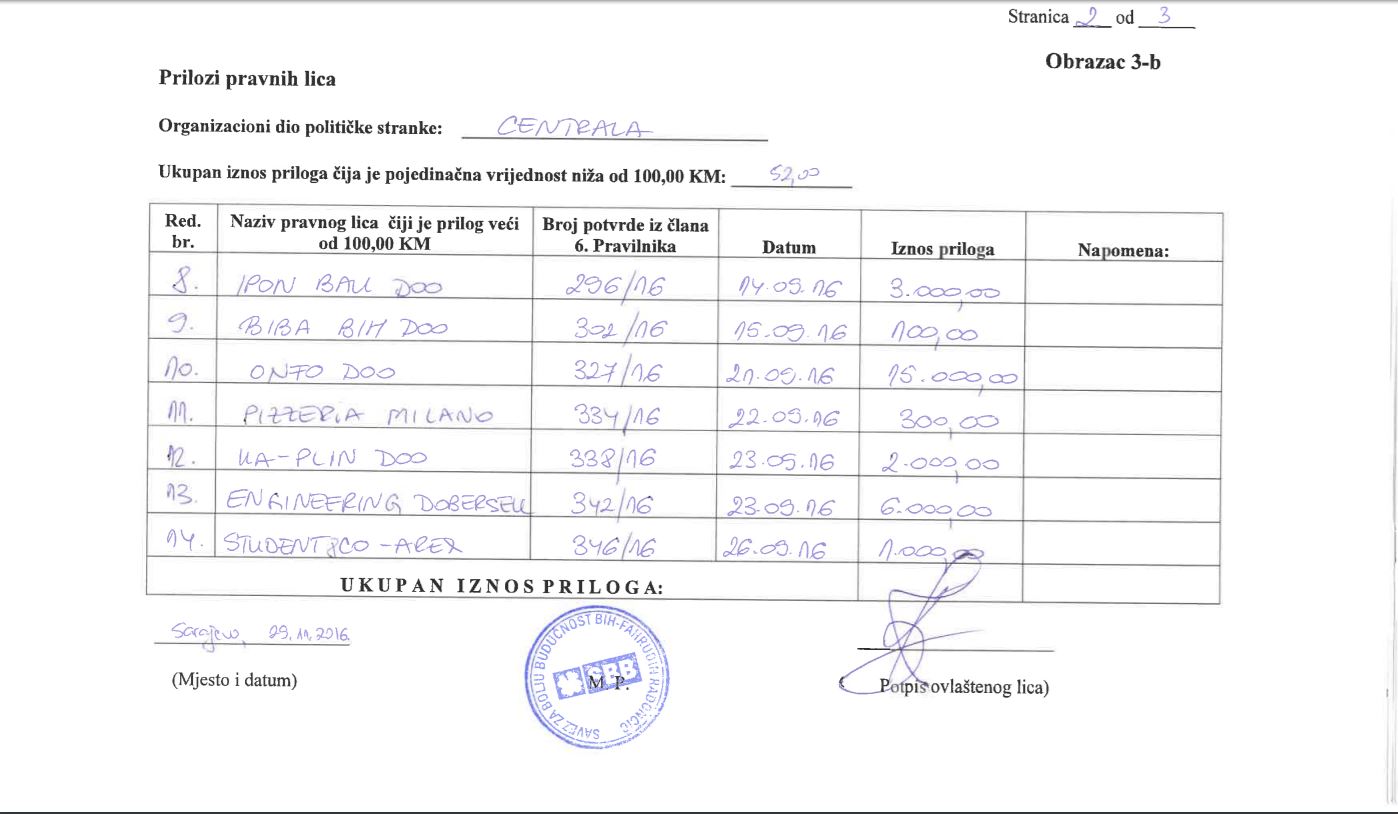 Stranica 2 od 3
Obrazac 3-b
Prilozi pravnih lica
Organizacioni dio političke stranke: CENTRALA
Ukupan iznos priloga čija je pojedinačna vrijednost niža od 100,00 KM: 52,00
Red. br. Naziv pravnog lica čiji je prilog veći od 100,00 KM Broj potvrde iz člana 6. Pravilnika Datum Iznos priloga Napomena:
8. IPON BAU DOO 296/16 14.09.16 3.000,00
9. BIBA BIH DOO 302/16 15.09.16 100,00
10. ONFO DOO 327/16 21.09.16 15.000,00
11. PIZZERIA MILANO 334/16 22.09.16 300,00
12. KA-PLIN DOO 338/16 23.09.16 2.000,00
13. ENGINEERING DOBERSEK 342/16 23.09.16 6.000,00
14. STUDENT&CO - 346/16 26.09.16 1.000,00
UKUPAN IZNOS PRILOGA:
Sarajevo, 29.11.2016.
(Mjesto i datum)
SAVEZ ZA BOLJU BUDUĆNOST BIH-FAHRUDIN RADONČIĆ
SBB
M. P.
Potpis ovlaštenog lica)